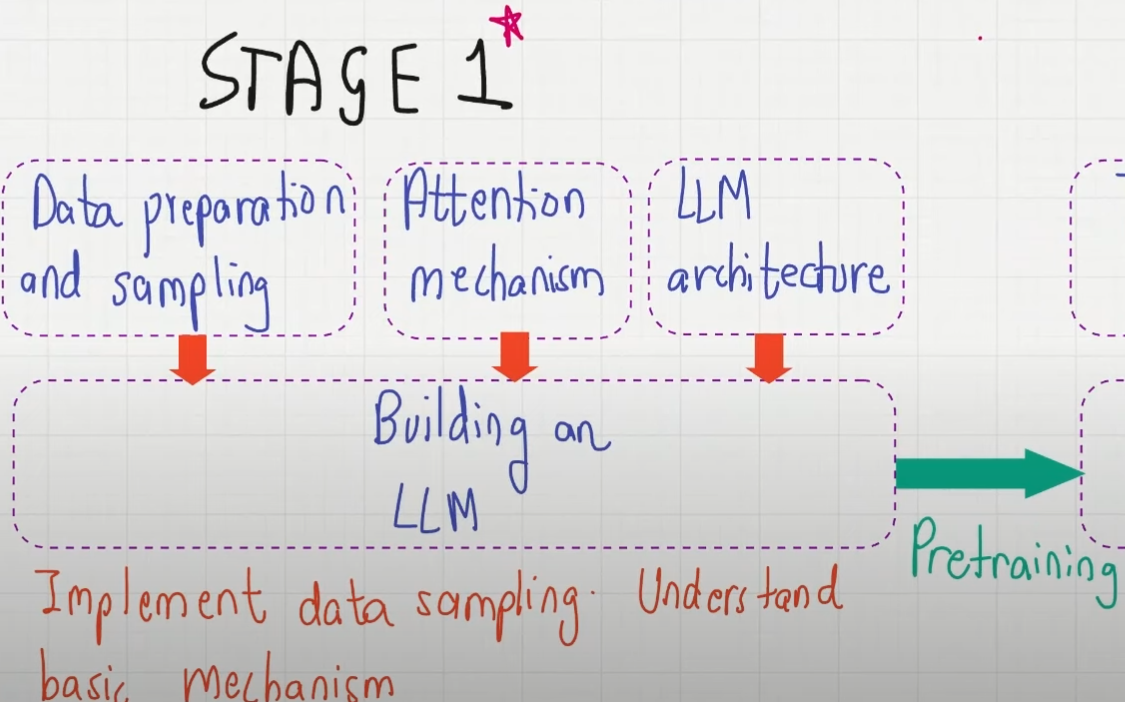 STAGE 1
Data preparation
and sampling
Attention
mechanism
LLM
architecture
Building an
LLM
Pretraining
Implement data sampling. Understand
basic mechanism